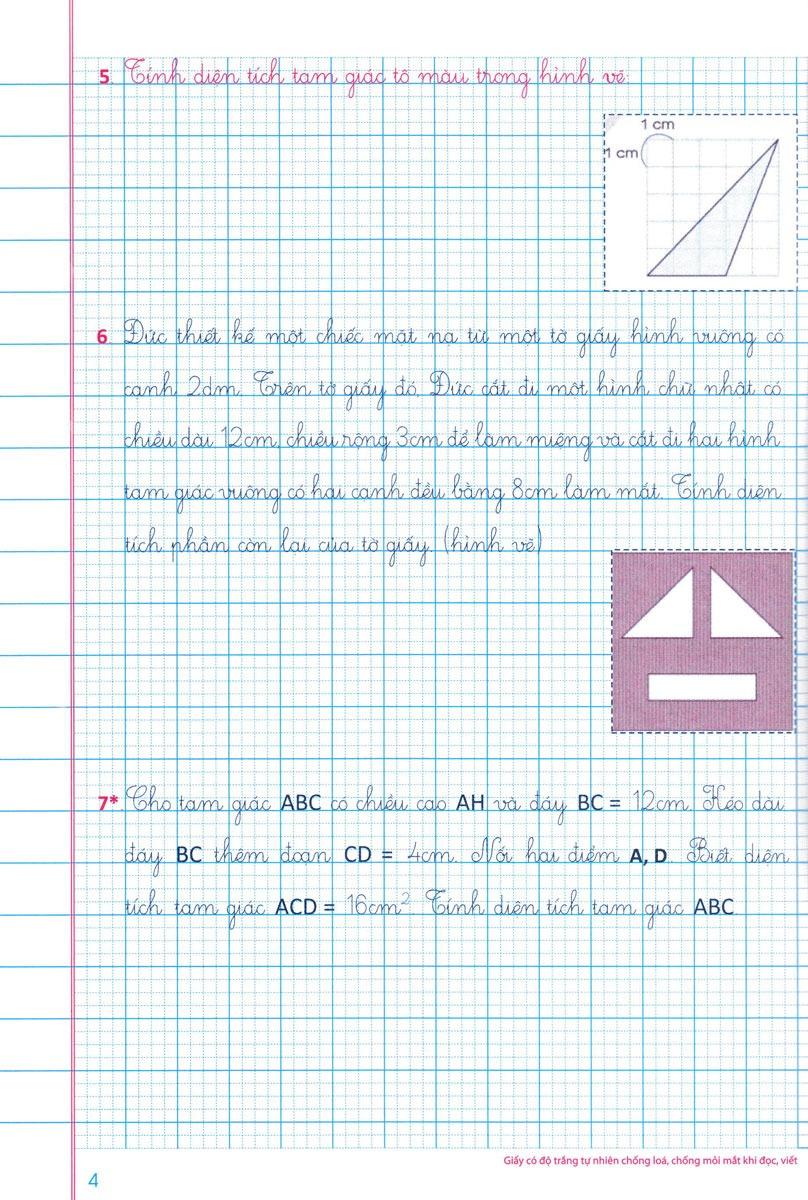 5. Tính diện tích tam giác tô màu trong hình vẽ:
1 cm
1 cm
6 Đức thiết kế một chiếc mặt nạ từ một tờ giấy hình vuông có
cạnh 2dm. Trên tờ giấy đó, Đức cắt đi một hình chữ nhật có
chiều dài 12cm, chiều rộng 3cm để làm miệng và cắt đi hai hình
tam giác vuông có hai cạnh đều bằng 8cm làm mắt. Tính diện
tích phần còn lại của tờ giấy. (hình vẽ)
7* Cho tam giác ABC có chiều cao AH và đáy BC = 12cm. Kéo dài
đáy BC thêm đoạn CD = 4cm. Nối hai điểm A, D. Biết diện
tích tam giác ACD = 16cm². Tính diện tích tam giác ABC
Giấy có độ trắng tự nhiên chống loá, chống mỏi mắt khi đọc, viết
4